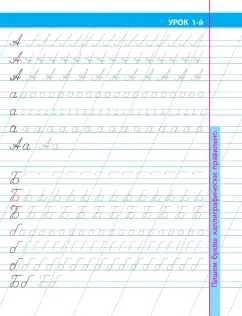 УРОК 1-й
А
А
А
а
а
а
Аа Аа
Б
Б
Б
б
б
б
Бб Бб
Пишем буквы каллиграфически правильно